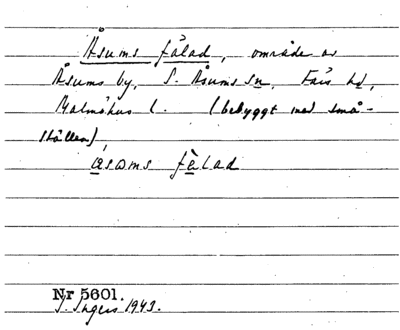 Åsums fälad, område av
Åsums by, S. Åsums sn, Färs hd,
Malmöhus l. (bebyggt med små-
ställen),
æsoms fàlad
Nr 5601.
I. Ingers 1943.